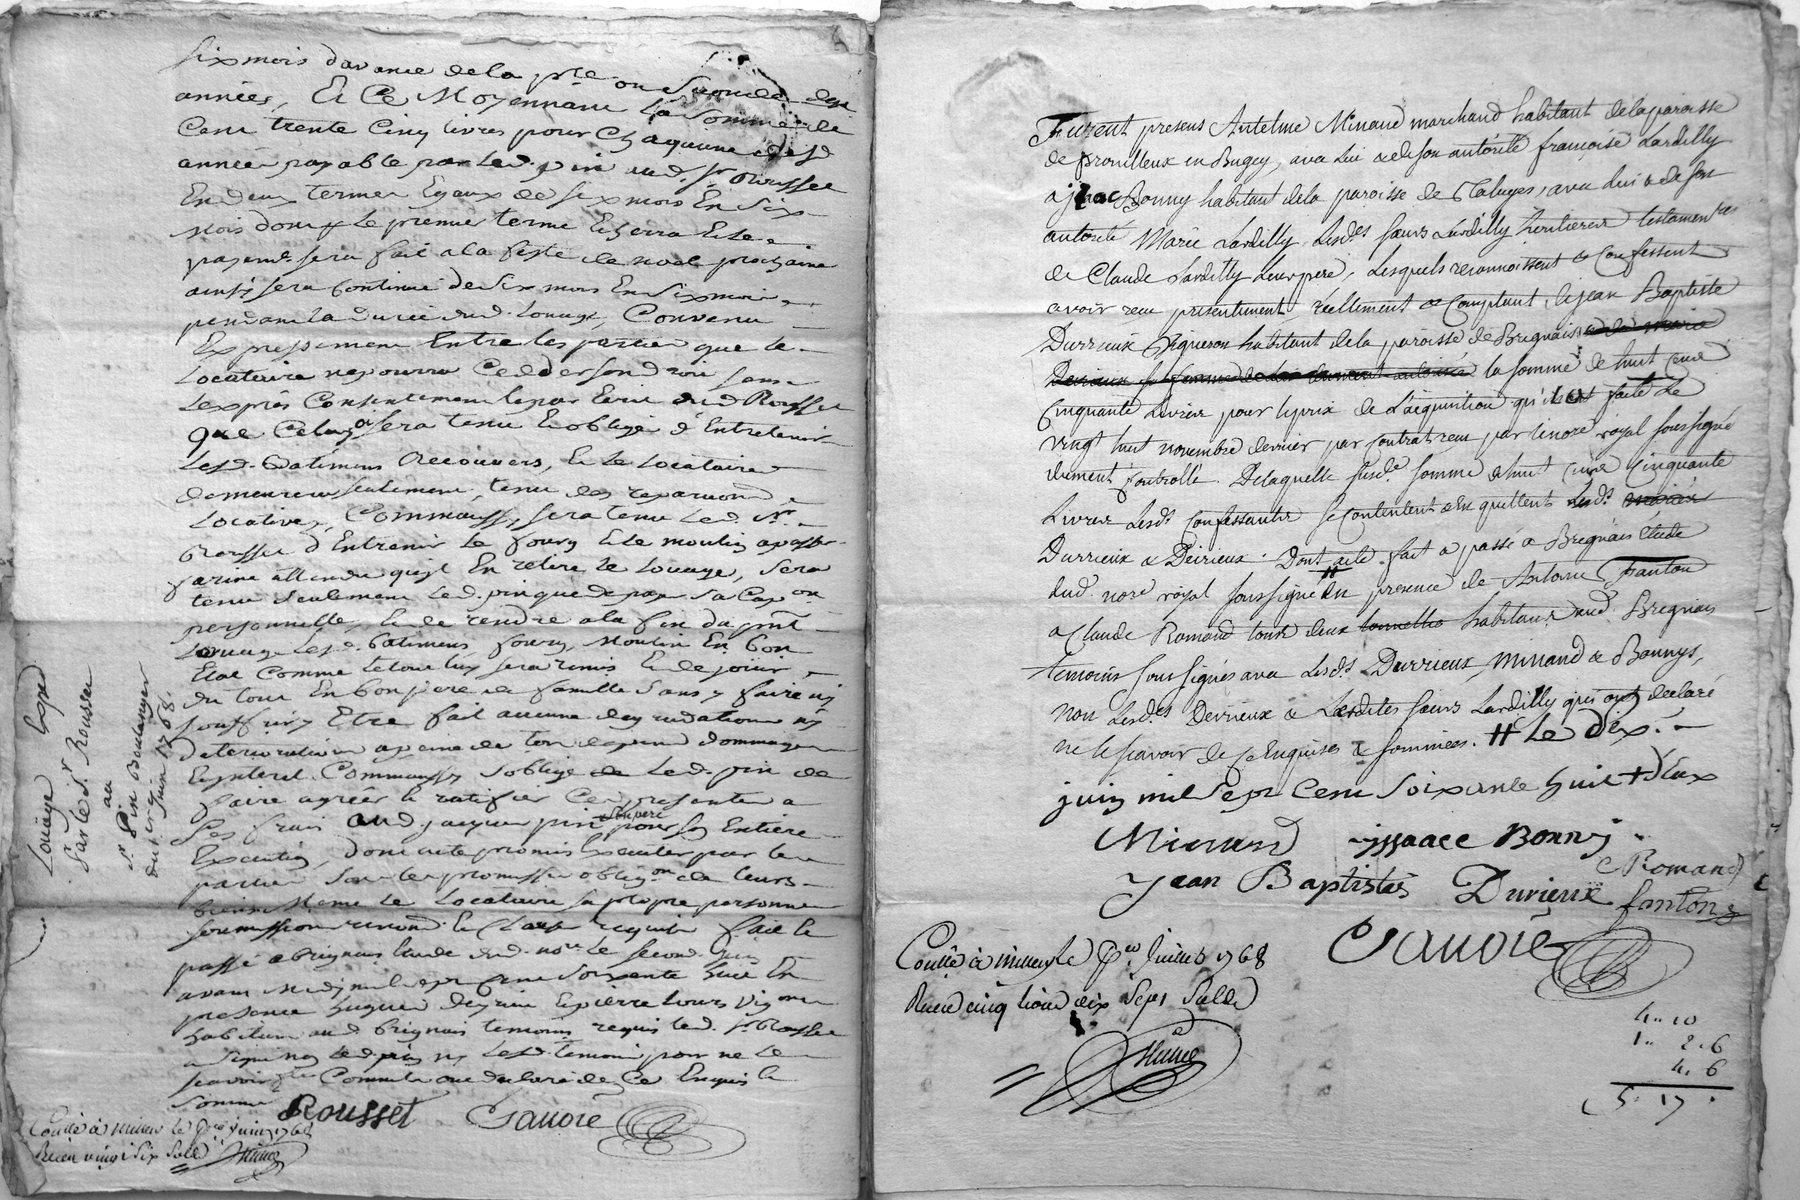 six mois davance de la pre ou seconde des
années, Et Ce Moyennant la somme de
Cent trente Cinq livres pour Chaqu'une desd
année payable par led. pin aud. sr Rousset
En deux termes Egaux de six mois En six
mois dont le premier terme Echerra Et le
payemt. sera fait a la feste de noel prochaine
ainsy sera Continué de six mois En six mois
pendant la durée dud. louage, Convenu
Expressement Entre les parties que le
Locataire ne pourra Cedder son droit sans
Lexprès Consentement par Ecrit dud Rousset
que Celuy sera tenu Et obligé d'Entretenir
Lesd. Batimens Recouvers, Et le Locataire
demeurera seulement tenu des reparaons
Locatives, Comm'aussy sera tenu led. Sr.
Rousset d'Entretenir le fourg Et le moulin a passer
farine attendu qu'il En retire le louage, sera
tenu seulement led. pin que de payer sa Capon
personnelle, Et de rendre a la fin du pnt
Louage Lesd. Batimens, fourg, Moulin En bon
Etat Comme le tout luy sera remis Et de jouir
du tout En bon pere de famille sans y faire ny
souffrir y Etre fait aucune degradation ny
deterioration a peine de tous depens dommages
Et interet. Comm'aussy s'oblige led. pin de
faire agréer Et ratifier Ces presentes a
Ses frais aud jacques pin son pere pour son Entiere
Execution, dont acte promis Executer par les
parties sous les promesses obligon de leurs
biens Meme le Locataire sa propre personne
soumission renond. Et Clauses requises fait Et
passé a Brignais Etude dud. nore le second juin
avant Midy mil sept Cent soixante huit En
presence Et pierre tours vignerons
habitans aud Brignais temoins requis led. sr Rousset
a signé non led. pin ny lesd. temoins pour ne le
scavoir Comme ils ont declaré de Ce Enquis Et
sommés
Rousset Gavore
Contlé à millery le juin 1768
Recu vingt six sols
Louage Copé
Par le Sr. Rousset
au
Sr. Pin Boulanger
du juin 1768.
Furent presens Antelme Minaud marchand habitant de la paroisse
de prouilleux en Bugey, avec lui & de son autorité françoise Lardilly
& jsaac Bonny habitant de la paroisse de Taluyers, avec lui & de son
autorité Marie Lardilly, Lesdes soeurs Lardilly heritieres testamenres
de Claude Lardilly leur pere, Lesquels reconnoissent & Confessent
avoir reçu presentement réellement & Comptant, de jean Baptiste
Durrieux Vigneron habitant de la paroisse de Brignais
la somme de huit Cent
Cinquante Livres pour le prix de l'acquisition qu'il a faite le
vingt huit novembre dernier par contrat reçu par le nore royal soussigné
duement Controllé. De laquelle susde somme de huit Cent Cinquante
Livres Lesds Confessants se contentent & en quittent Lesds
Durrieux & Deirieux. Dont acte. fait & passé a Brignais Etude
dud. nore royal soussigné # En presence de Antoine Fanton
& Claude Romand tous deux habitans aud. Brignais
temoins soussignés avec Lesds Durrieux, Minaud & Bonnys,
non Lesdes Derrieux & Lesdites soeurs Lardilly qui ont declaré
ne le scavoir de ce Enquises & sommées. # Le dix
juin mil Sept Cent Soixante huit
Minaud jssaace Bonny
C Romand
Jean Baptistes Durieux fanton
Gavore
Contlé à millery le juillet 1768
Recu cinq livres dix sept Sols
4.. 10
1.. 2.6
4.6
5. 17